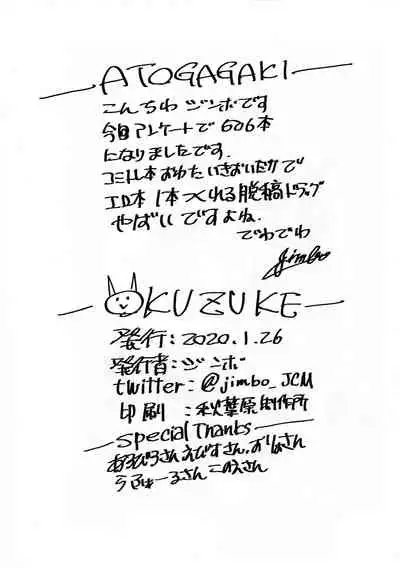 ATOGAGAKI
こんちわ ジンボです
今回アンケートで606本
になりましたです。
コミトレ本おわたいきおいだかで
エロ本1本つくれる脱稿ドラッグ
やばいですよね。
でわでわ
Jimbo
OKUZUKE
発行:2020.1.26
発行者:ジンボ
twitter:@jimbo_JCM
印刷:秋葉原制作所
Special Thanks
えびすさん、おりょさん
さん